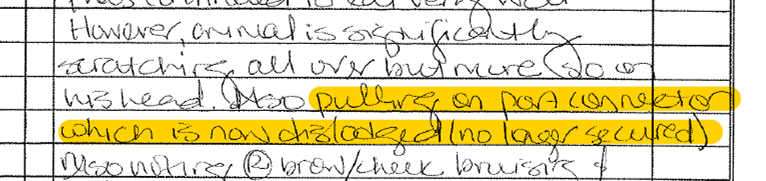 However, animal is significantly
scratching all over but more so on
his head. Also pulling on port connector
which is now dislodged (no longer secured)
Also noting Ⓡ brow/cheek bruising &